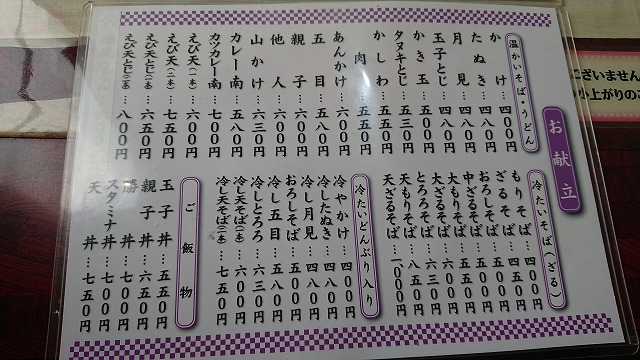 お献立
温かいそば・うどん
かけ…四〇〇円
たぬき…四八〇円
月見…四八〇円
玉子とじ…四八〇円
かき玉…五五〇円
タヌキとじ…五三〇円
かしわ…五五〇円
肉…五五〇円
あんかけ…六〇〇円
五目…五八〇円
親子…六〇〇円
他人…六〇〇円
山かけ…六三〇円
カレー南…五八〇円
カツカレー南…七〇〇円
えび天(一本)…六〇〇円
えび天(二本)…七五〇円
えび天とじ(一本)…六五〇円
えび天とじ(二本)…八〇〇円
冷たいそば(ざる)
もりそば…四〇〇円
ざるそば…四五〇円
おろしそば…五〇〇円
中ざるそば…
大もりそば…
大ざるそば…
とろろそば…
天もりそば…八五〇円
天ざるそば…一〇〇〇円
冷たいどんぶり入り
冷やかけ…四〇〇円
冷したぬき…四八〇円
冷し月見…四八〇円
おろしそば…五〇〇円
冷し五目…五八〇円
冷しとろろ…六三〇円
冷し天そば(一本)…六〇〇円
冷し天そば(二本)…七五〇円
ご飯物
玉子丼…五五〇円
親子丼…六五〇円
勝丼…七〇〇円
スタミナ丼…七〇〇円
天丼…七五〇円
ございません
小上がりのご